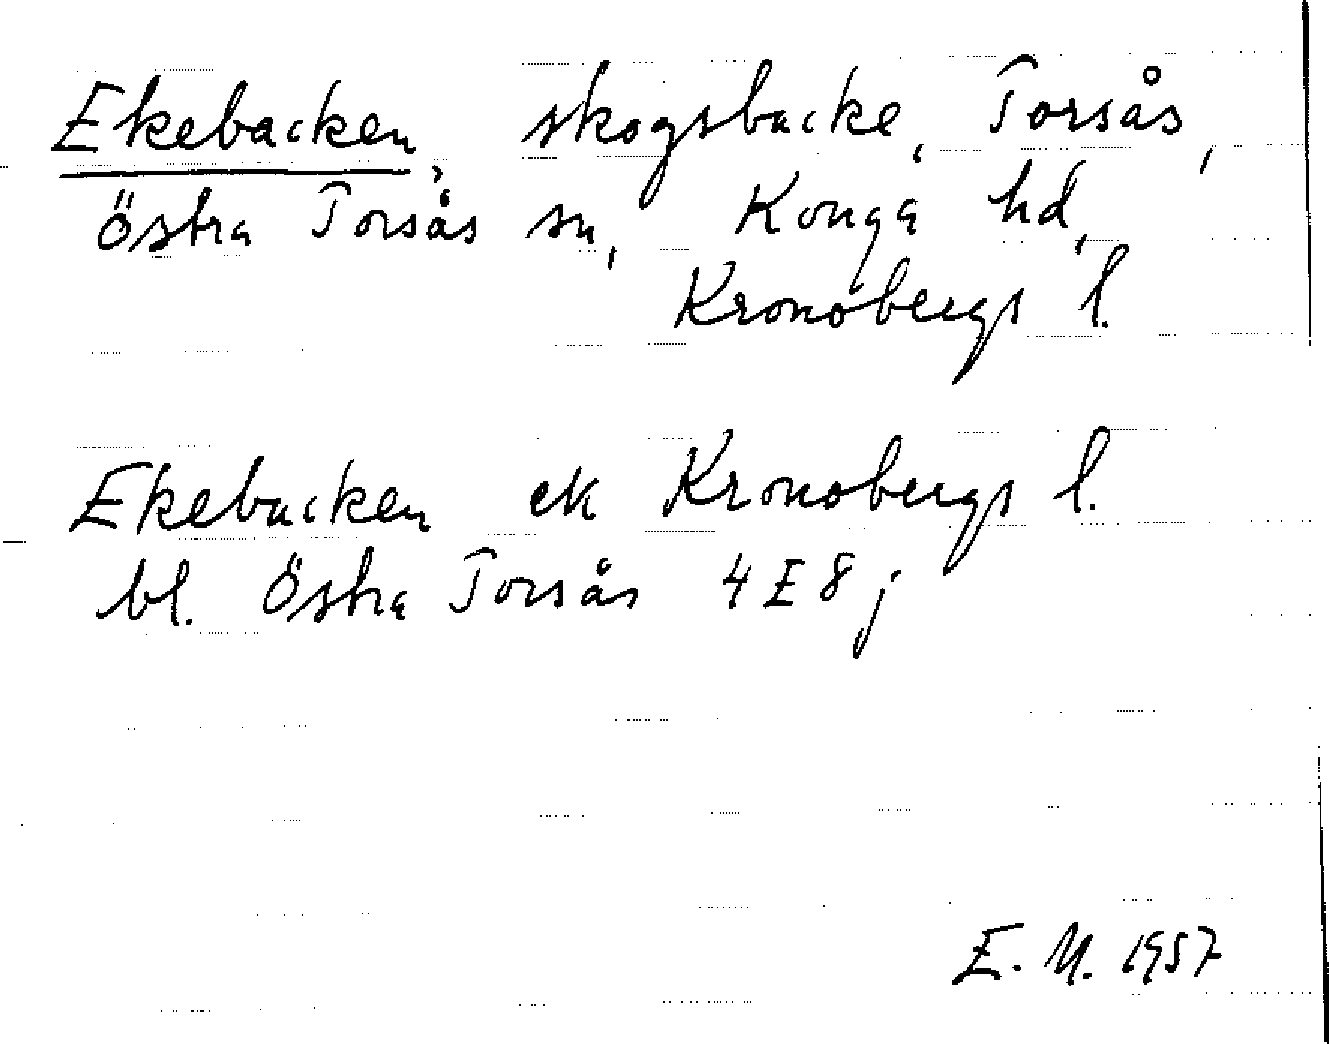 Ekebacken, skogsbacke, Torsås,
Östra Torsås sn, Konga hd,
Kronobergs l.
Ekebacken ek Kronobergs l.
bl. Östra Torsås 4E8j
E. U. 1957